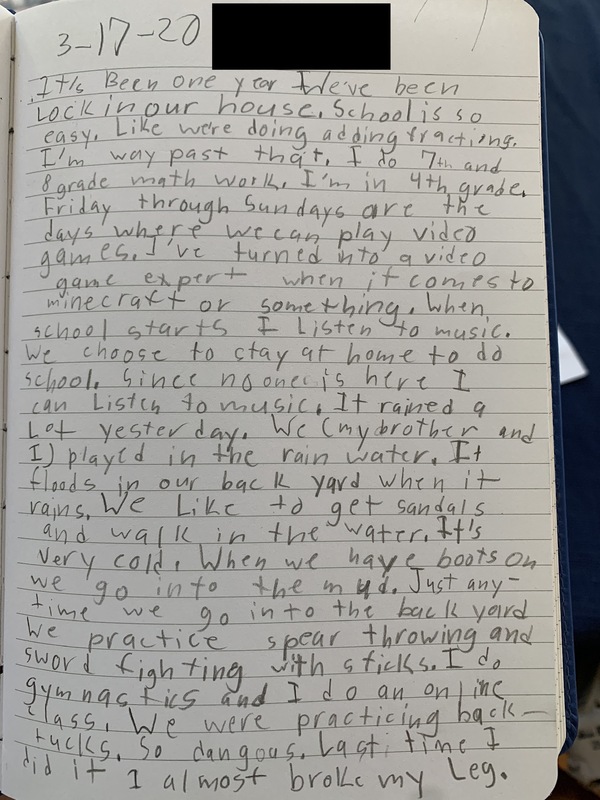 3-17-20
It's Been one year We've been
Lock in our house. School is so
easy. Like we're doing adding fractions.
I'm way past that. I do 7th and
8 grade math work. I'm in 4th grade.
Friday through Sundays are the
days where we can play video
games. I've turned into a video
game expert when it comes to
minecraft or something. When
school starts I Listen to music.
We choose to stay at home to do
school. Since no one is here I
can Listen to music. It rained a
Lot yesterday. We (my brother and
I) played in the rain water. It
floods in our back yard when it
rains. We Like to get sandals
and walk in the water. It's
very cold. When we have boots on
we go into the mud. Just any-
time we go into the back yard
We practice spear throwing and
sword fighting with sticks. I do
gymnastics and I do an online
class. We were practicing back-
tucks. So dangous. Last time I
did it I almost broke my Leg.